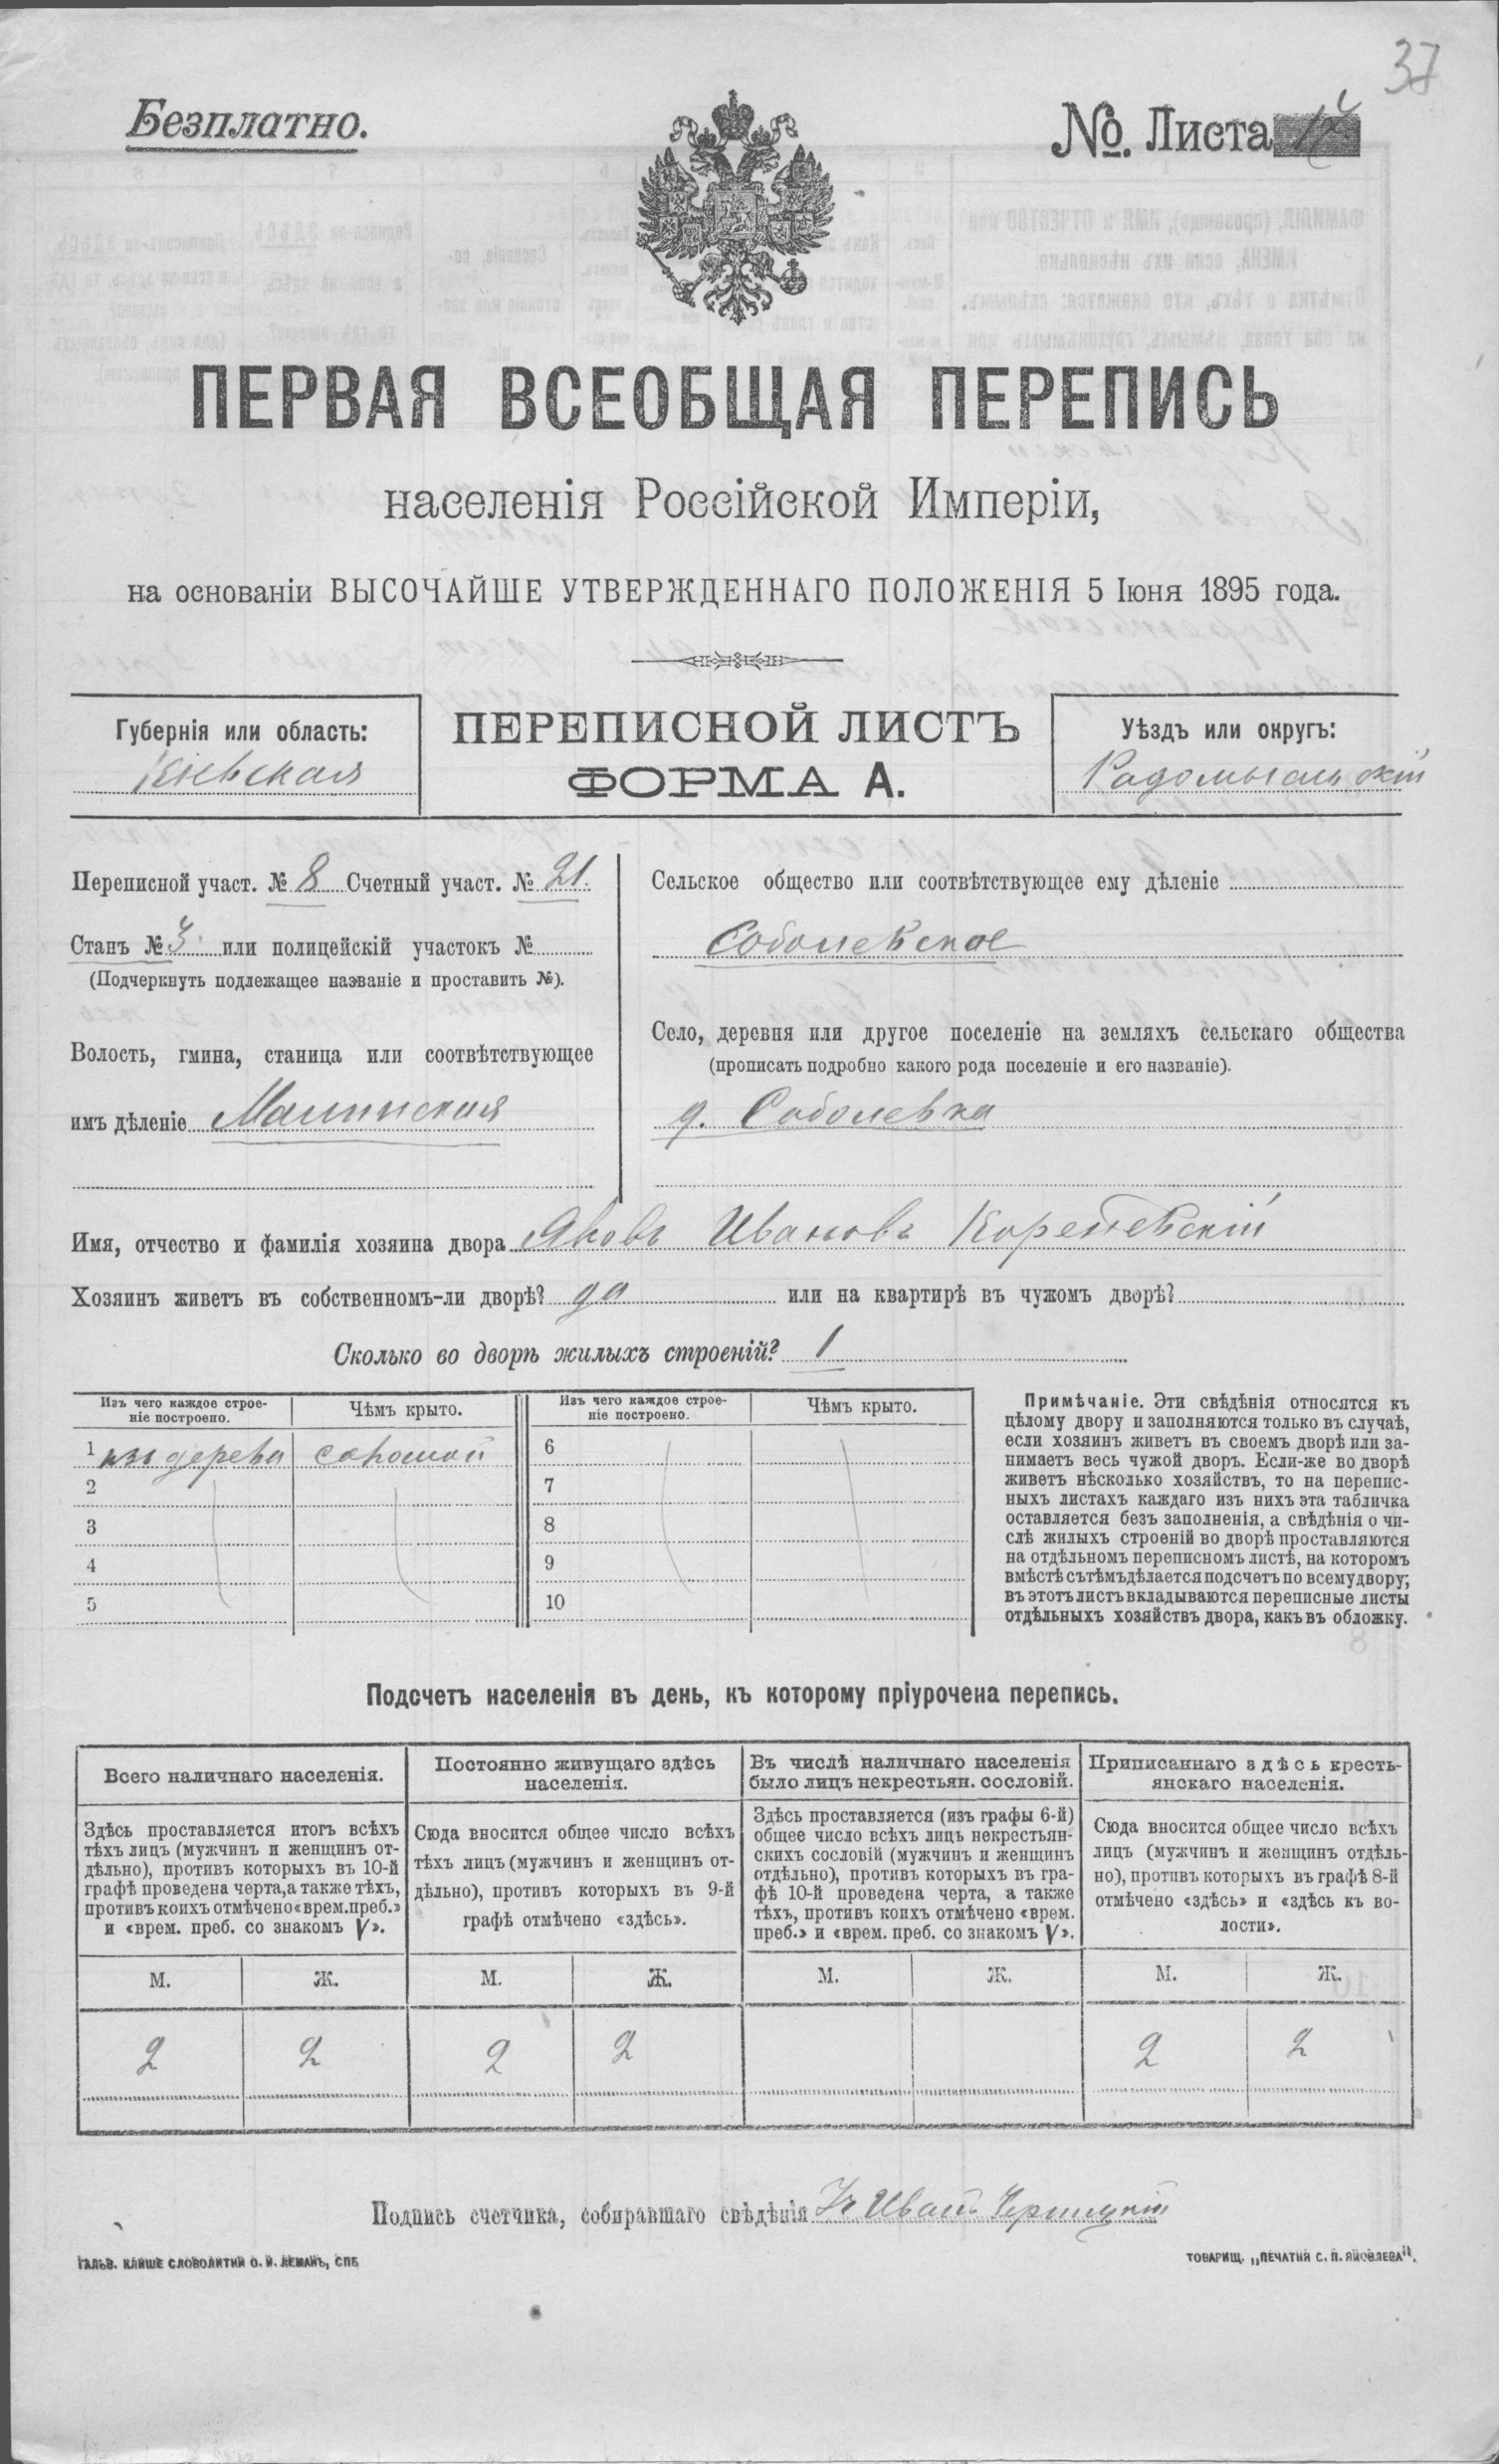 37
Безплатно.
№. Листа
ПЕРВАЯ ВСЕОБЩАЯ ПЕРЕПИСЬ
населенія Россійской Имперіи,
на основаніи ВЫСОЧАЙШЕ УТВЕРЖДЕННАГО ПОЛОЖЕНІЯ 5 Іюня 1895 года.
Губернія или область:
Кіевская
ПЕРЕПИСНОЙ ЛИСТЪ
ФОРМА А.
Уѣздъ или округъ:
Радомысльскій
Переписной участ. № 8 Счетный участ. № 21.
Станъ № 3 или полицейскій участокъ №
(Подчеркнуть подлежащее названіе и проставить №).
Волость, гмина, станица или соотвѣтствующее
имъ дѣленіе Малинская
Сельское общество или соотвѣтствующее ему дѣленіе
Соболевское
Село, деревня или другое поселеніе на земляхъ сельскаго общества
(прописать подробно какого рода поселеніе и его названіе).
д. Соболевка
Имя, отчество и фамилія хозяина двора Яковъ Ивановъ Кореневскій
Хозяинъ живетъ въ собственномъ-ли дворѣ? да или на квартирѣ въ чужомъ дворѣ?
Сколько во дворѣ жилыхъ строеній? 1
Изъ чего каждое строе-
ніе построено.
Чѣмъ крыто.
Изъ чего каждое строе-
ніе построено.
Чѣмъ крыто.
1 изъ дерева соломой 6
2 7
3 8
4 9
5 10
Примѣчаніе. Эти свѣдѣнія относятся къ
цѣлому двору и заполняются только въ случаѣ,
если хозяинъ живетъ въ своемъ дворѣ или за-
нимаетъ весь чужой дворъ. Если-же во дворѣ
живетъ нѣсколько хозяйствъ, то на перепис-
ныхъ листахъ каждаго изъ нихъ эта табличка
оставляется безъ заполненія, а свѣдѣнія о чи-
слѣ жилыхъ строеній во дворѣ проставляются
на отдѣльномъ переписномъ листѣ, на которомъ
вмѣстѣ съ тѣмъ дѣлается подсчетъ по всему двору;
въ этотъ листъ вкладываются переписные листы
отдѣльныхъ хозяйствъ двора, какъ въ обложку.
Подсчетъ населенія въ день, къ которому пріурочена перепись.
Всего наличнаго населенія.
Здѣсь проставляется итогъ всѣхъ
тѣхъ лицъ (мужчинъ и женщинъ от-
дѣльно), противъ которыхъ въ 10-й
графѣ проведена черта, а также тѣхъ,
противъ коихъ отмѣчено «врем. преб.»
и «врем. преб. со знакомъ V».
М. Ж.
2 2
Постоянно живущаго здѣсь
населенія.
Сюда вносится общее число всѣхъ
тѣхъ лицъ (мужчинъ и женщинъ от-
дѣльно), противъ которыхъ въ 9-й
графѣ отмѣчено «здѣсь».
М. Ж.
2 2
Въ числѣ наличнаго населенія
было лицъ некрестьян. сословій.
Здѣсь проставляется (изъ графы 6-й)
общее число всѣхъ лицъ некрестьян-
скихъ сословій (мужчинъ и женщинъ
отдѣльно), противъ которыхъ въ гра-
фѣ 10-й проведена черта, а также
тѣхъ, противъ коихъ отмѣчено «врем.
преб.» и «врем. преб. со знакомъ V».
М. Ж.
Приписаннаго здѣсь кресть-
янскаго населенія.
Сюда вносится общее число всѣхъ
лицъ (мужчинъ и женщинъ отдѣль-
но), противъ которыхъ въ графѣ 8-й
отмѣчено «здѣсь» и «здѣсь къ во-
лости».
М. Ж.
2 2
Подпись счетчика, собиравшаго свѣдѣнія Иван
ГАЛЬВ. КЛИШЕ СЛОВОЛИТНИ О. И. ЛЕМАНЪ, СПБ
ТОВАРИЩ. „ПЕЧАТНЯ С. П. ЯКОВЛЕВА".